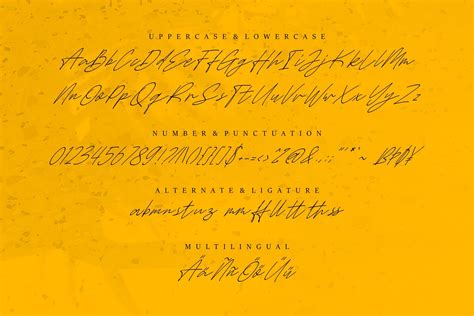 UPPERCASE & LOWERCASE
Aa Bb Cc Dd Ee Ff Gg Hh Ii Jj Kk Ll Mm
Nn Oo Pp Qq Rr Ss Tt Uu Vv Ww Xx Yy Zz
NUMBER & PUNCTUATION
0123456789!?
ALTERNATE & LIGATURE
abmnrstuz mm ff ll tt th ss
MULTILINGUAL
Ää Ññ Öö Üü